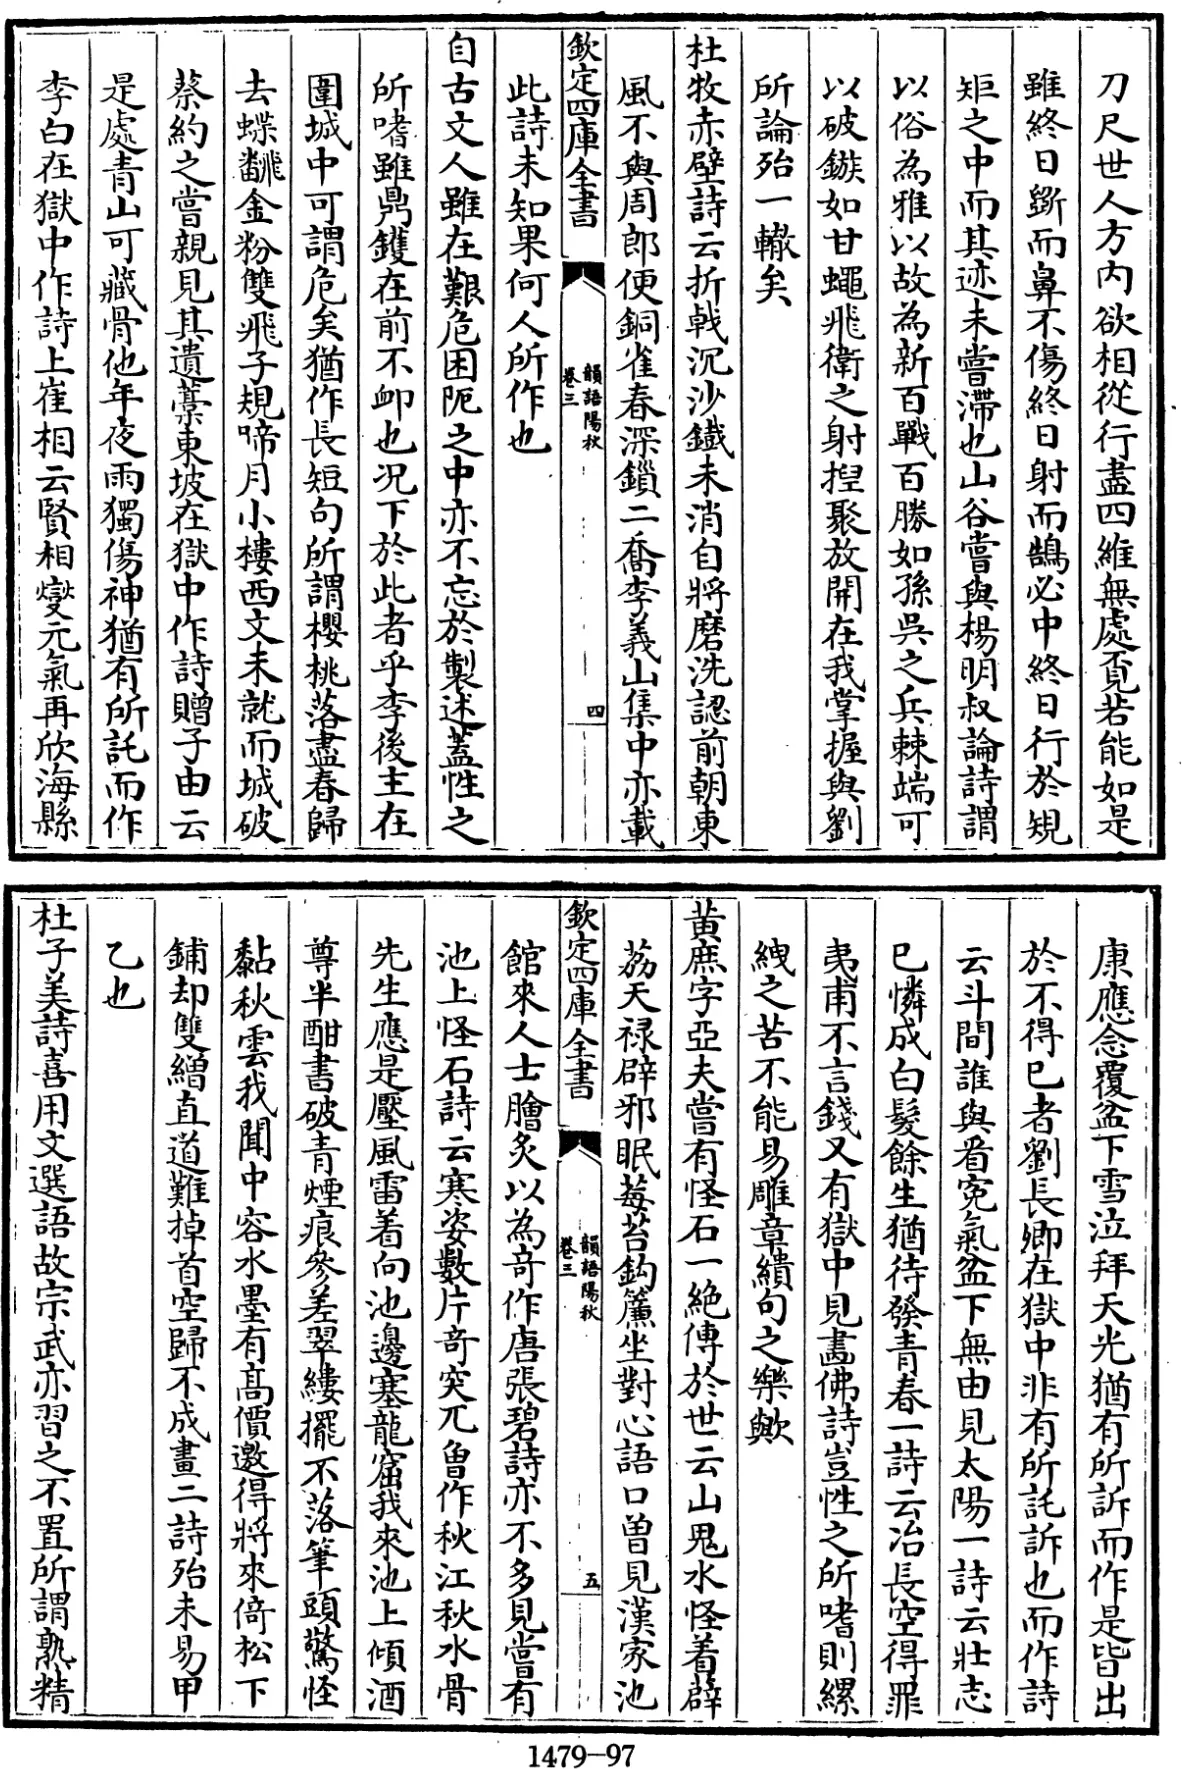 刀尺世人方内欲相從行盡四維無處覔若能如是
雖終日斵而鼻不傷終日射而鵠必中終日行於規
矩之中而其迹未嘗滯也山谷嘗與楊明叔論詩謂
以俗為雅以故為新百戰百勝如孫吳之兵棘端可
以破鏃如甘蠅飛衛之射揑聚放開在我掌握與劉
所論殆一轍矣
杜牧赤壁詩云折戟沉沙鐵未消自將磨洗認前朝東
風不與周郎便銅雀春深鎖二喬李義山集中亦載
欽定四庫全書
韻語陽秋
卷三
四
此詩未知果何人所作也
自古文人雖在艱危困阨之中亦不忘於製述蓋性之
所嗜雖鼎鑊在前不衂也况下於此者乎李後主在
圍城中可謂危矣猶作長短句所謂櫻桃落盡春歸
去蝶翻金粉雙飛子規啼月小樓西文未就而城破
蔡約之嘗親見其遺藁東坡在獄中作詩贈子由云
是處青山可藏骨他年夜雨獨傷神猶有所託而作
李白在獄中作詩上崔相云賢相燮元氣再欣海縣
康應念覆盆下雪泣拜天光猶有所訴而作是皆出
於不得已者劉長卿在獄中非有所託訴也而作詩
云斗間誰與看寃氣盆下無由見太陽一詩云壯志
已憐成白髮餘生猶待發青春一詩云冶長空得罪
夷甫不言錢又有獄中見畵佛詩豈性之所嗜則縲
絏之苦不能易雕章繢句之樂歟
黄庶字亞夫嘗有怪石一絶傳於世云山鬼水怪着薜
荔天禄辟邪眠莓苔鈎簾坐對心語口曽見漢家池
欽定四庫全書
韻語陽秋
卷三
五
館來人士膾炙以為竒作唐張碧詩亦不多見嘗有
池上怪石詩云寒姿數片竒突兀曽作秋江秋水骨
先生應是壓風雷着向池邊塞龍窟我來池上傾酒
尊半酣書破青煙痕參差翠縷擺不落筆頭驚怪
黏秋雲我聞中容水墨有高價邀得將來倚松下
鋪却雙繒直道難掉首空歸不成畫二詩殆未易甲
乙也
杜子美詩喜用文選語故宗武亦習之不置所謂熟精
1479-97